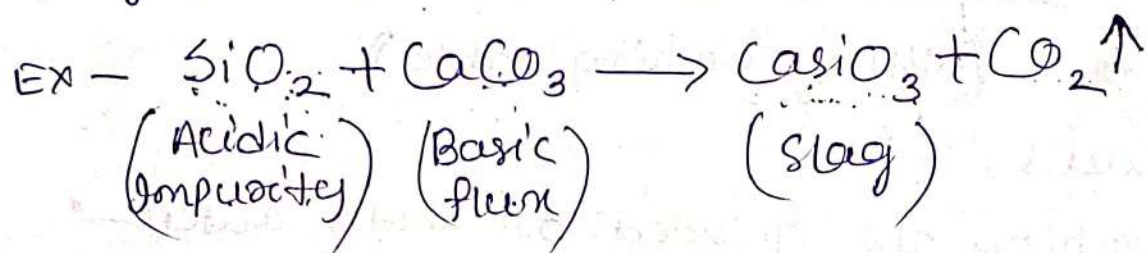 EX - SiO2 + CaCO3 → CaSiO3 + CO2↑
(Acidic Impurity) (Basic flux) (Slag)